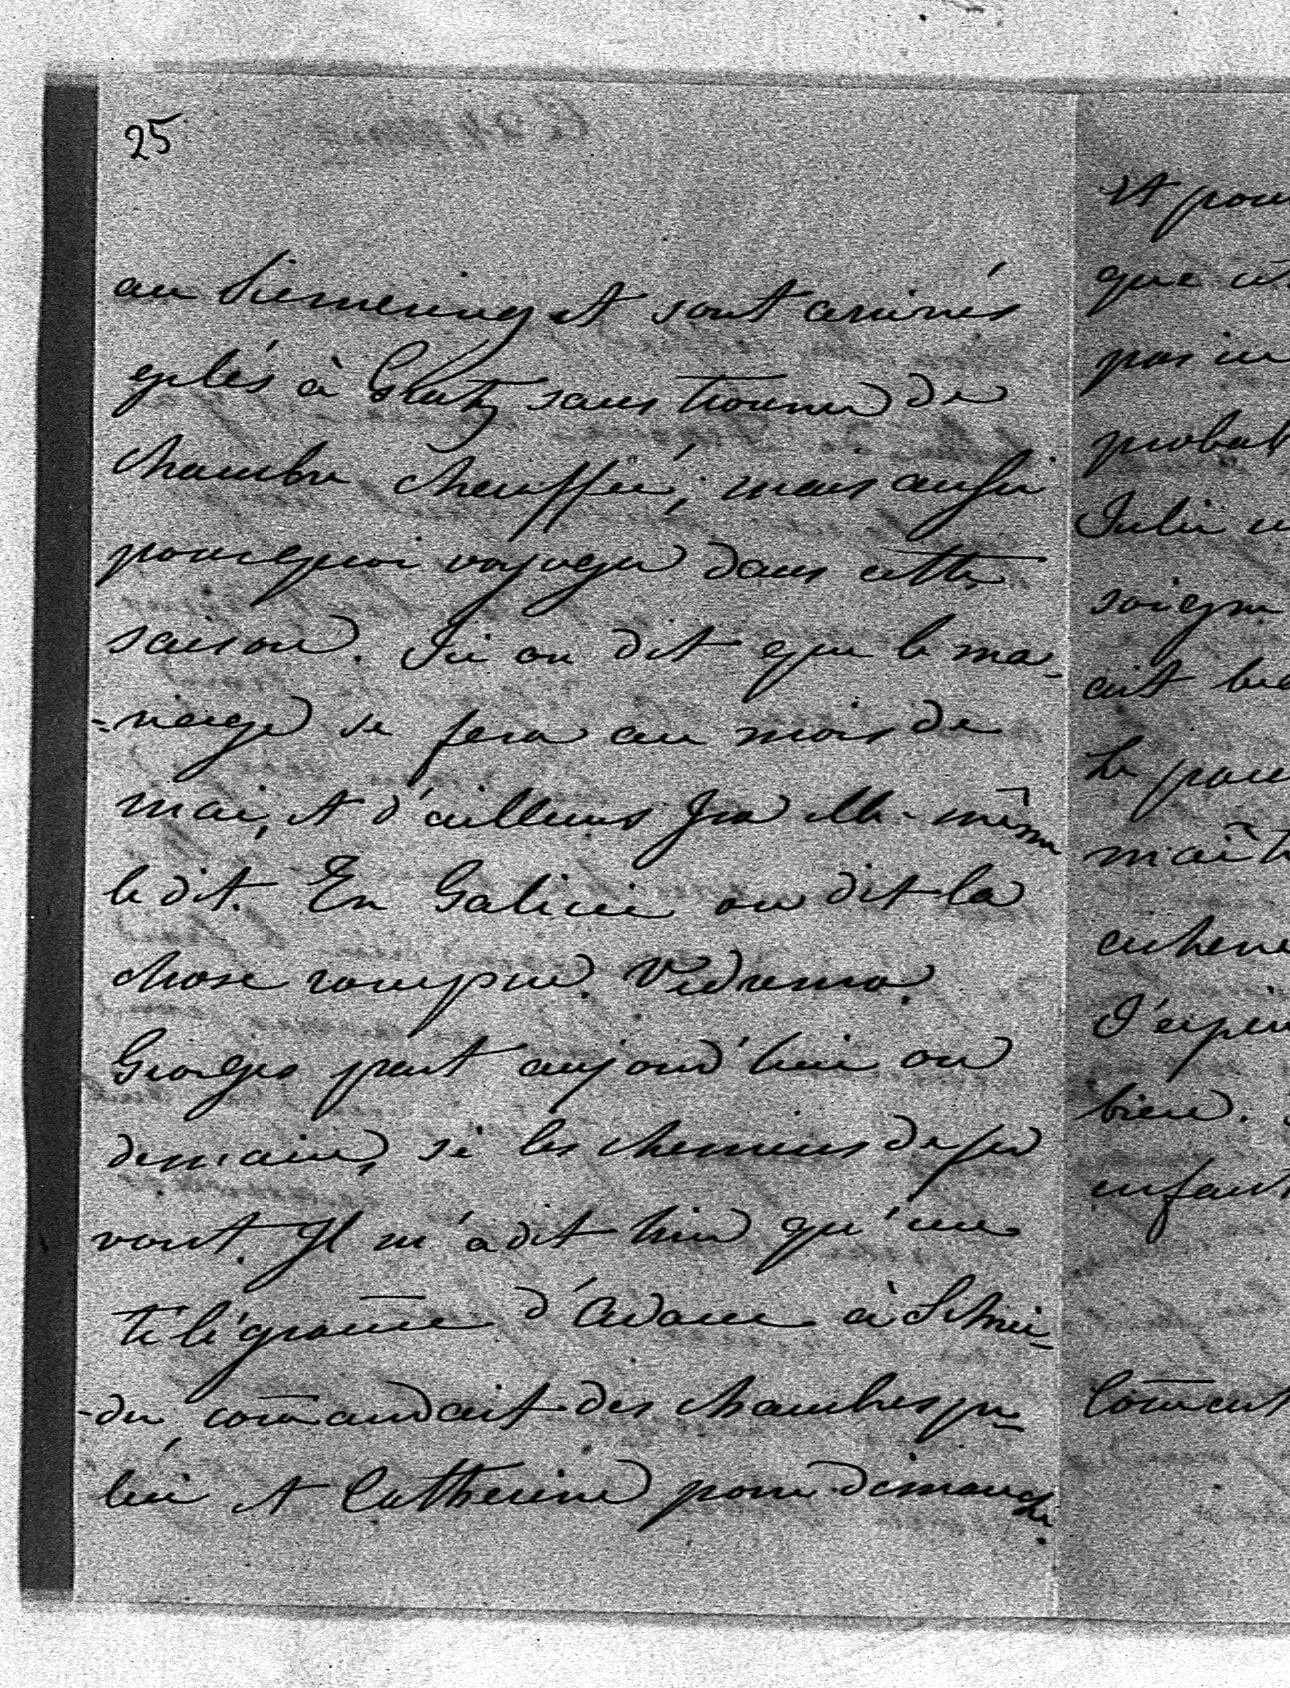 25
au Siemering et sont arrivés
gelés à Gratz sans trouver de
chambre chauffée, mais aussi
pourquoi voyager dans cette
saison. Ici on dit que le ma-
-riage se fera au mois de
mai, et d'ailleurs elle-même
le dit. En Galicie on dit la
chose rompue. Vedremo.
Georges part aujourd'hui ou
demain, si les chemins de fer
vont. Il m'a dit hier qu'un
télégram̄e d'Adam à Schnei-
-der com̄andait des chambres pr
lui et Catherine pour dimanche.
et pour
que
pas
probab
Julie
soigne
ait
le pau
maît
achevé
J'espè
bien.
enfant
Com̄ent